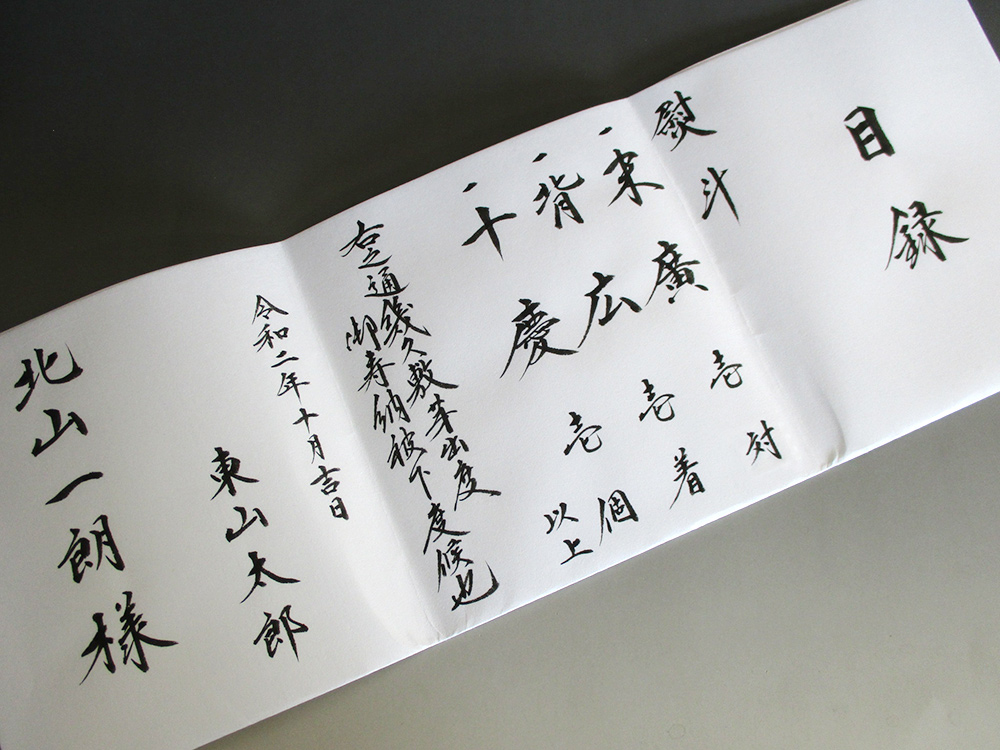 目録
熨斗
一末廣 壱対
一背広 壱着
一十慶 壱個
以上
右之通幾久敷芽出度
御寿納被下度候也
令和二年十月吉日
東山太郎
北山一朗様